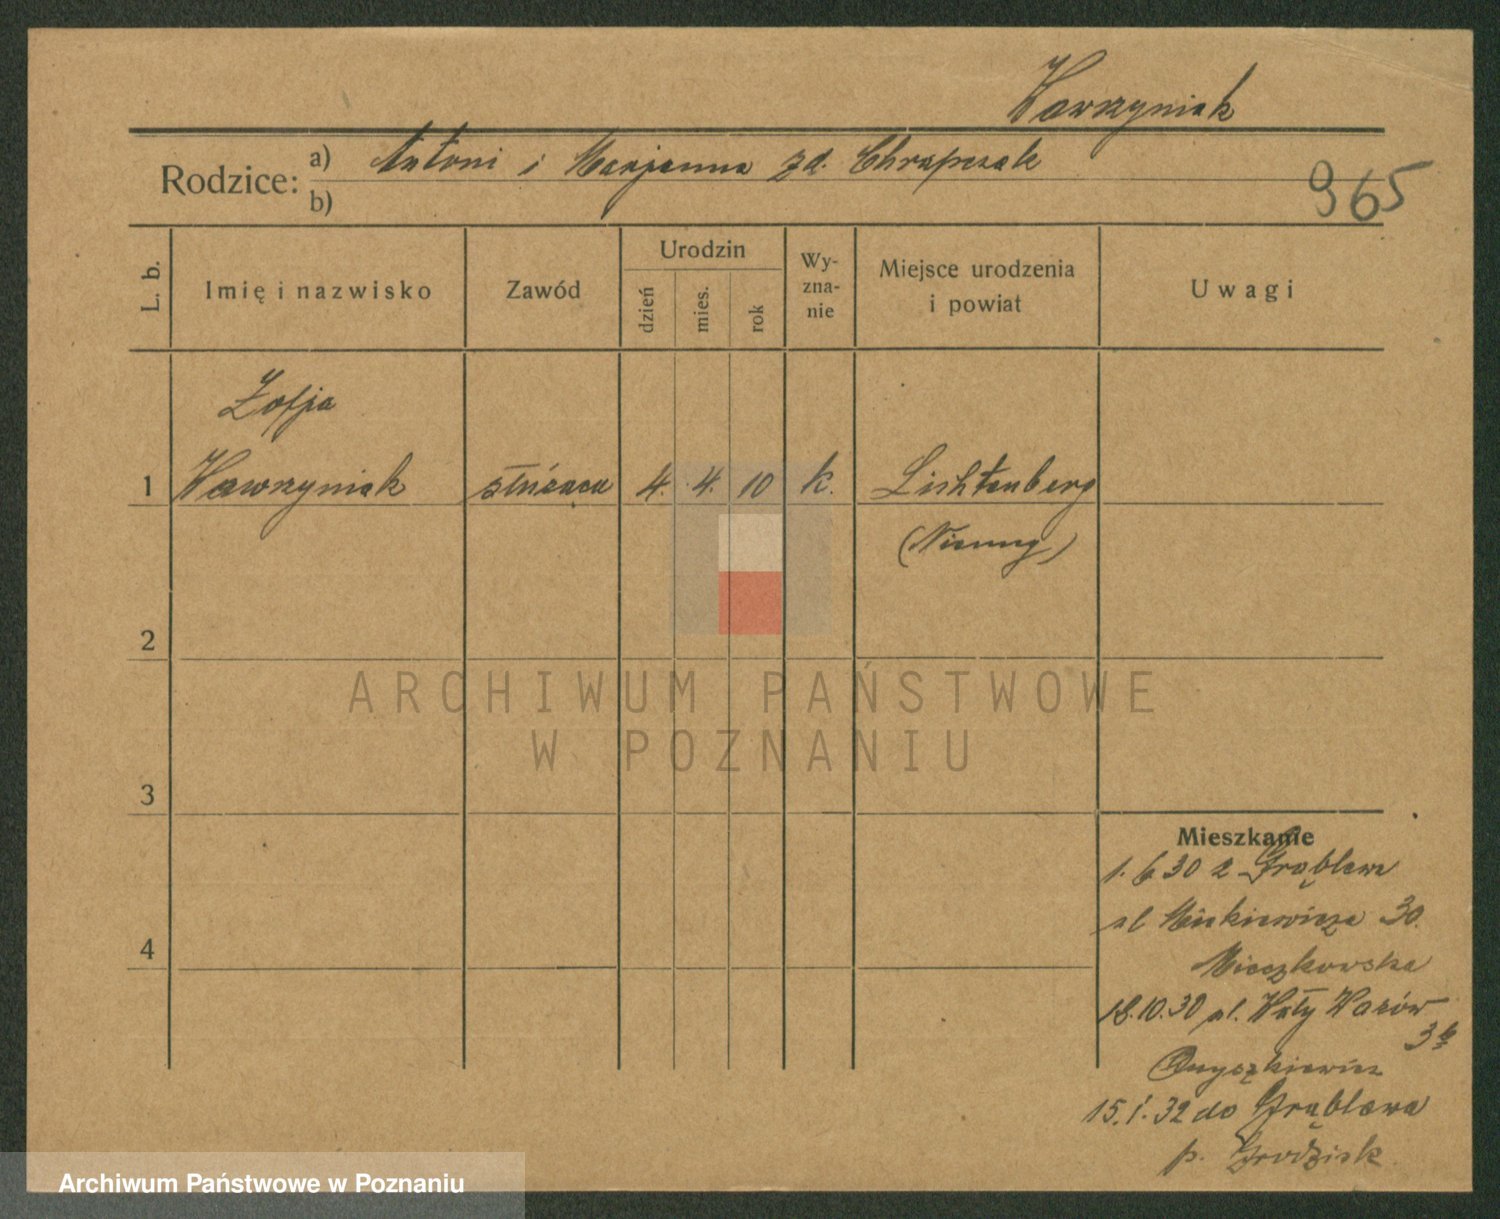 Wawrzyniak
Rodzice: a) Antoni i Marjanna zd. Chrapczak
b)
965
L. b.
Imię i nazwisko
Zawód
Urodzin
dzień
mies.
rok
Wy-
zna-
nie
Miejsce urodzenia
i powiat
Uwagi
Zofja
1 Wawrzyniak służąca 4. 4. 10 k. Lichtenberg
(Niemcy)
2
3
4
ARCHIWUM PAŃSTWOWE
W POZNANIU
Mieszkanie
1.6.30 z Grąblewa
ul Mickiewicza 30.
Mieczkowska
18.10.30 ul. Wały Wazów
3
15.1.32 do Grąblewa
p. Grodzisk
Archiwum Państwowe w Poznaniu